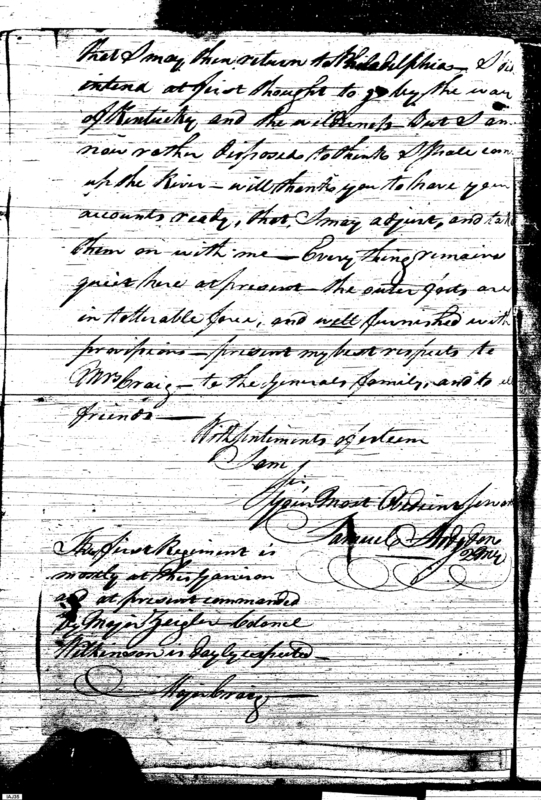 that I may then return to Philadelphia – I did
intend at first thought to go by the way
of Kentucky and the wilderness – But I am
now rather disposed to think I shall come
up the River – will thank you to have your
accounts ready, that I may adjust, and take
them on with me – Every thing remains
quiet here at present – the outer posts are
in tollerable force, and well furnished with
provisions – present my best respects to
Mrs Craig – to the Generals family, and to all
friends –
With sentiments of esteem
I am
Sir
Your Most Obedient Servant
Samuel Hodgdon
QMG
The first Regiment is
mostly at this Garrison
at present commanded
by Major Zeigler – Colonel
Wilkinson is dayly expected –
Major Craig